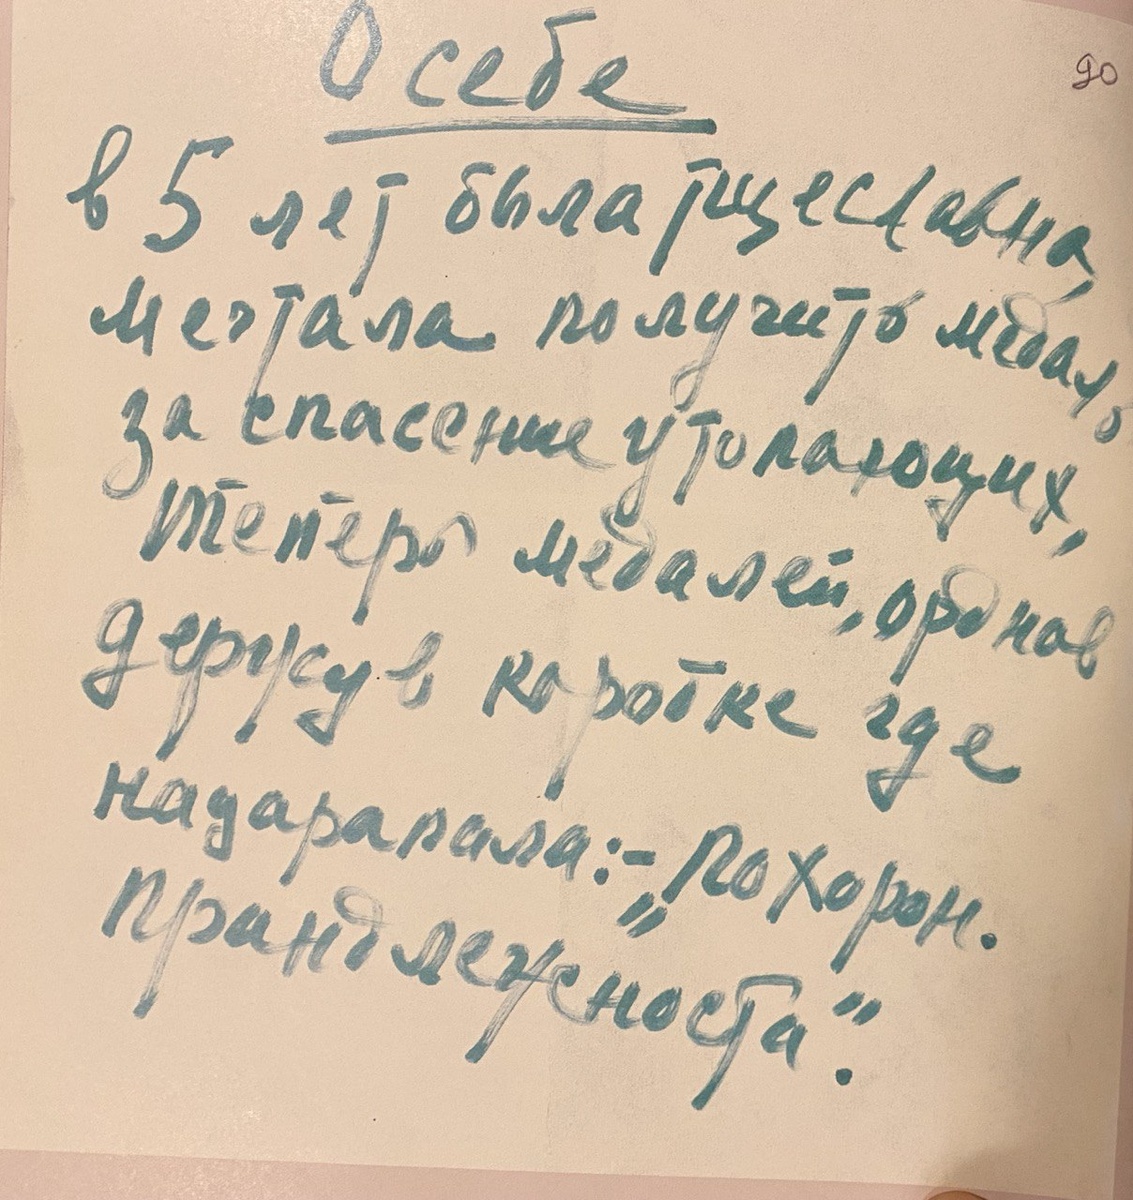 О себе
90
в 5 лет была тщеславна,
мечтала получить медаль
за спасение утопающих,
теперь медалей, орднов
держу в коробке где
нацарапала:- „Похорон.
прандлежноста".